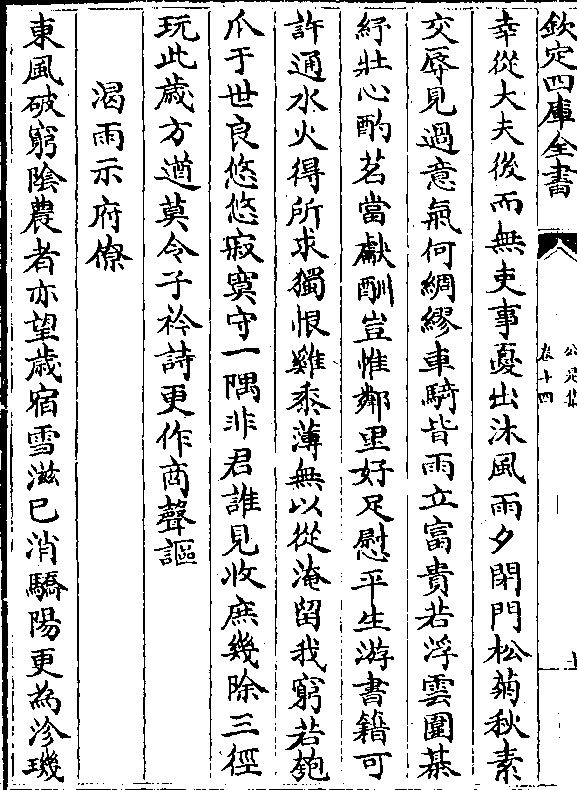 欽定四庫全書
公是集
卷十四
幸從大夫後而無吏事憂出沐風雨夕閉門松菊秋素
交辱見過意氣何綢繆車騎皆雨立富貴若浮雲圍棊
紓壯心酌茗當獻酬豈惟鄰里好足慰平生游書籍可
許通水火得所求獨恨雞黍薄無以從淹留我窮若匏
爪于世良悠悠寂寞守一隅非君誰見收庶幾除三徑
玩此歲方遒莫令子衿詩更作商聲謳
渴雨示府僚
東風破窮陰農者亦望歲宿雪滋已消驕陽更為沴璣